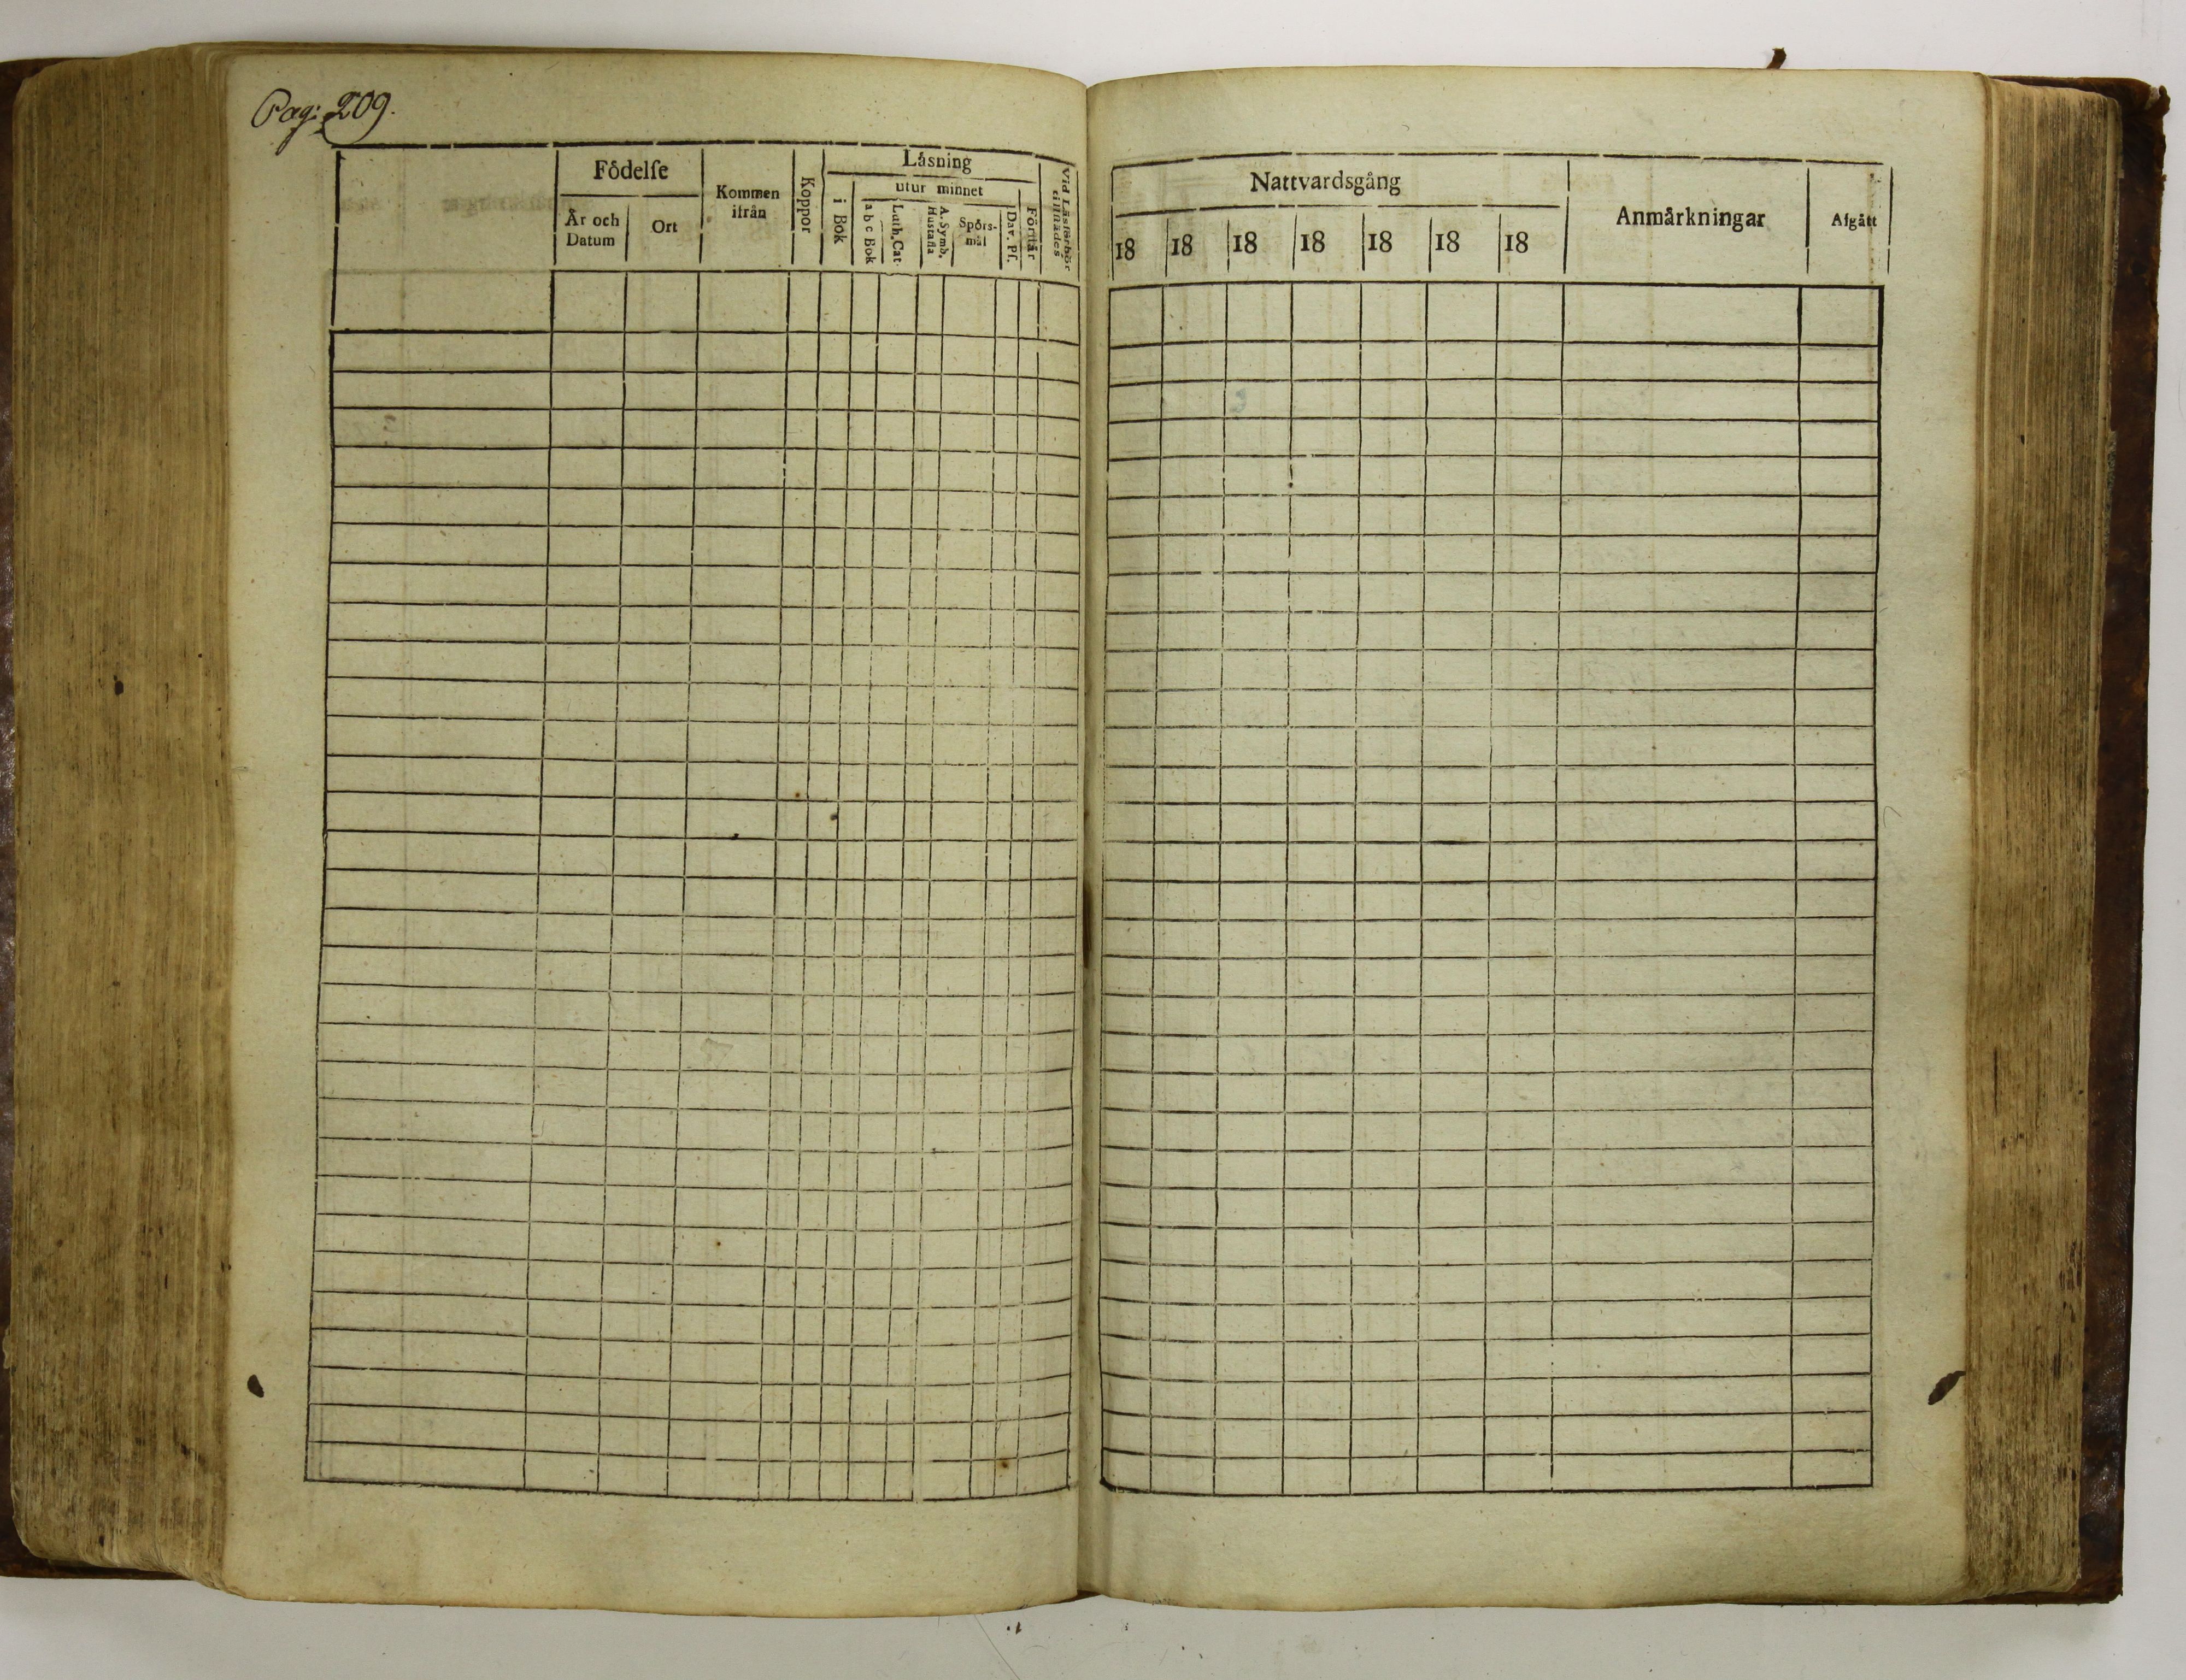 Pag: 209.
Födelse
År och Datum
Ort
Kommen ifrån
Koppor
Läsning
i Bok
utur minnet
a b c Bok
Luth. Cat.
A. Symb. Hustafla
Spörsmål
Dav. Ps.
Förstår
Vid Läsförhör tillstädes
Nattvardsgång
18 18 18 18 18 18 18
Anmärkningar
Afgått